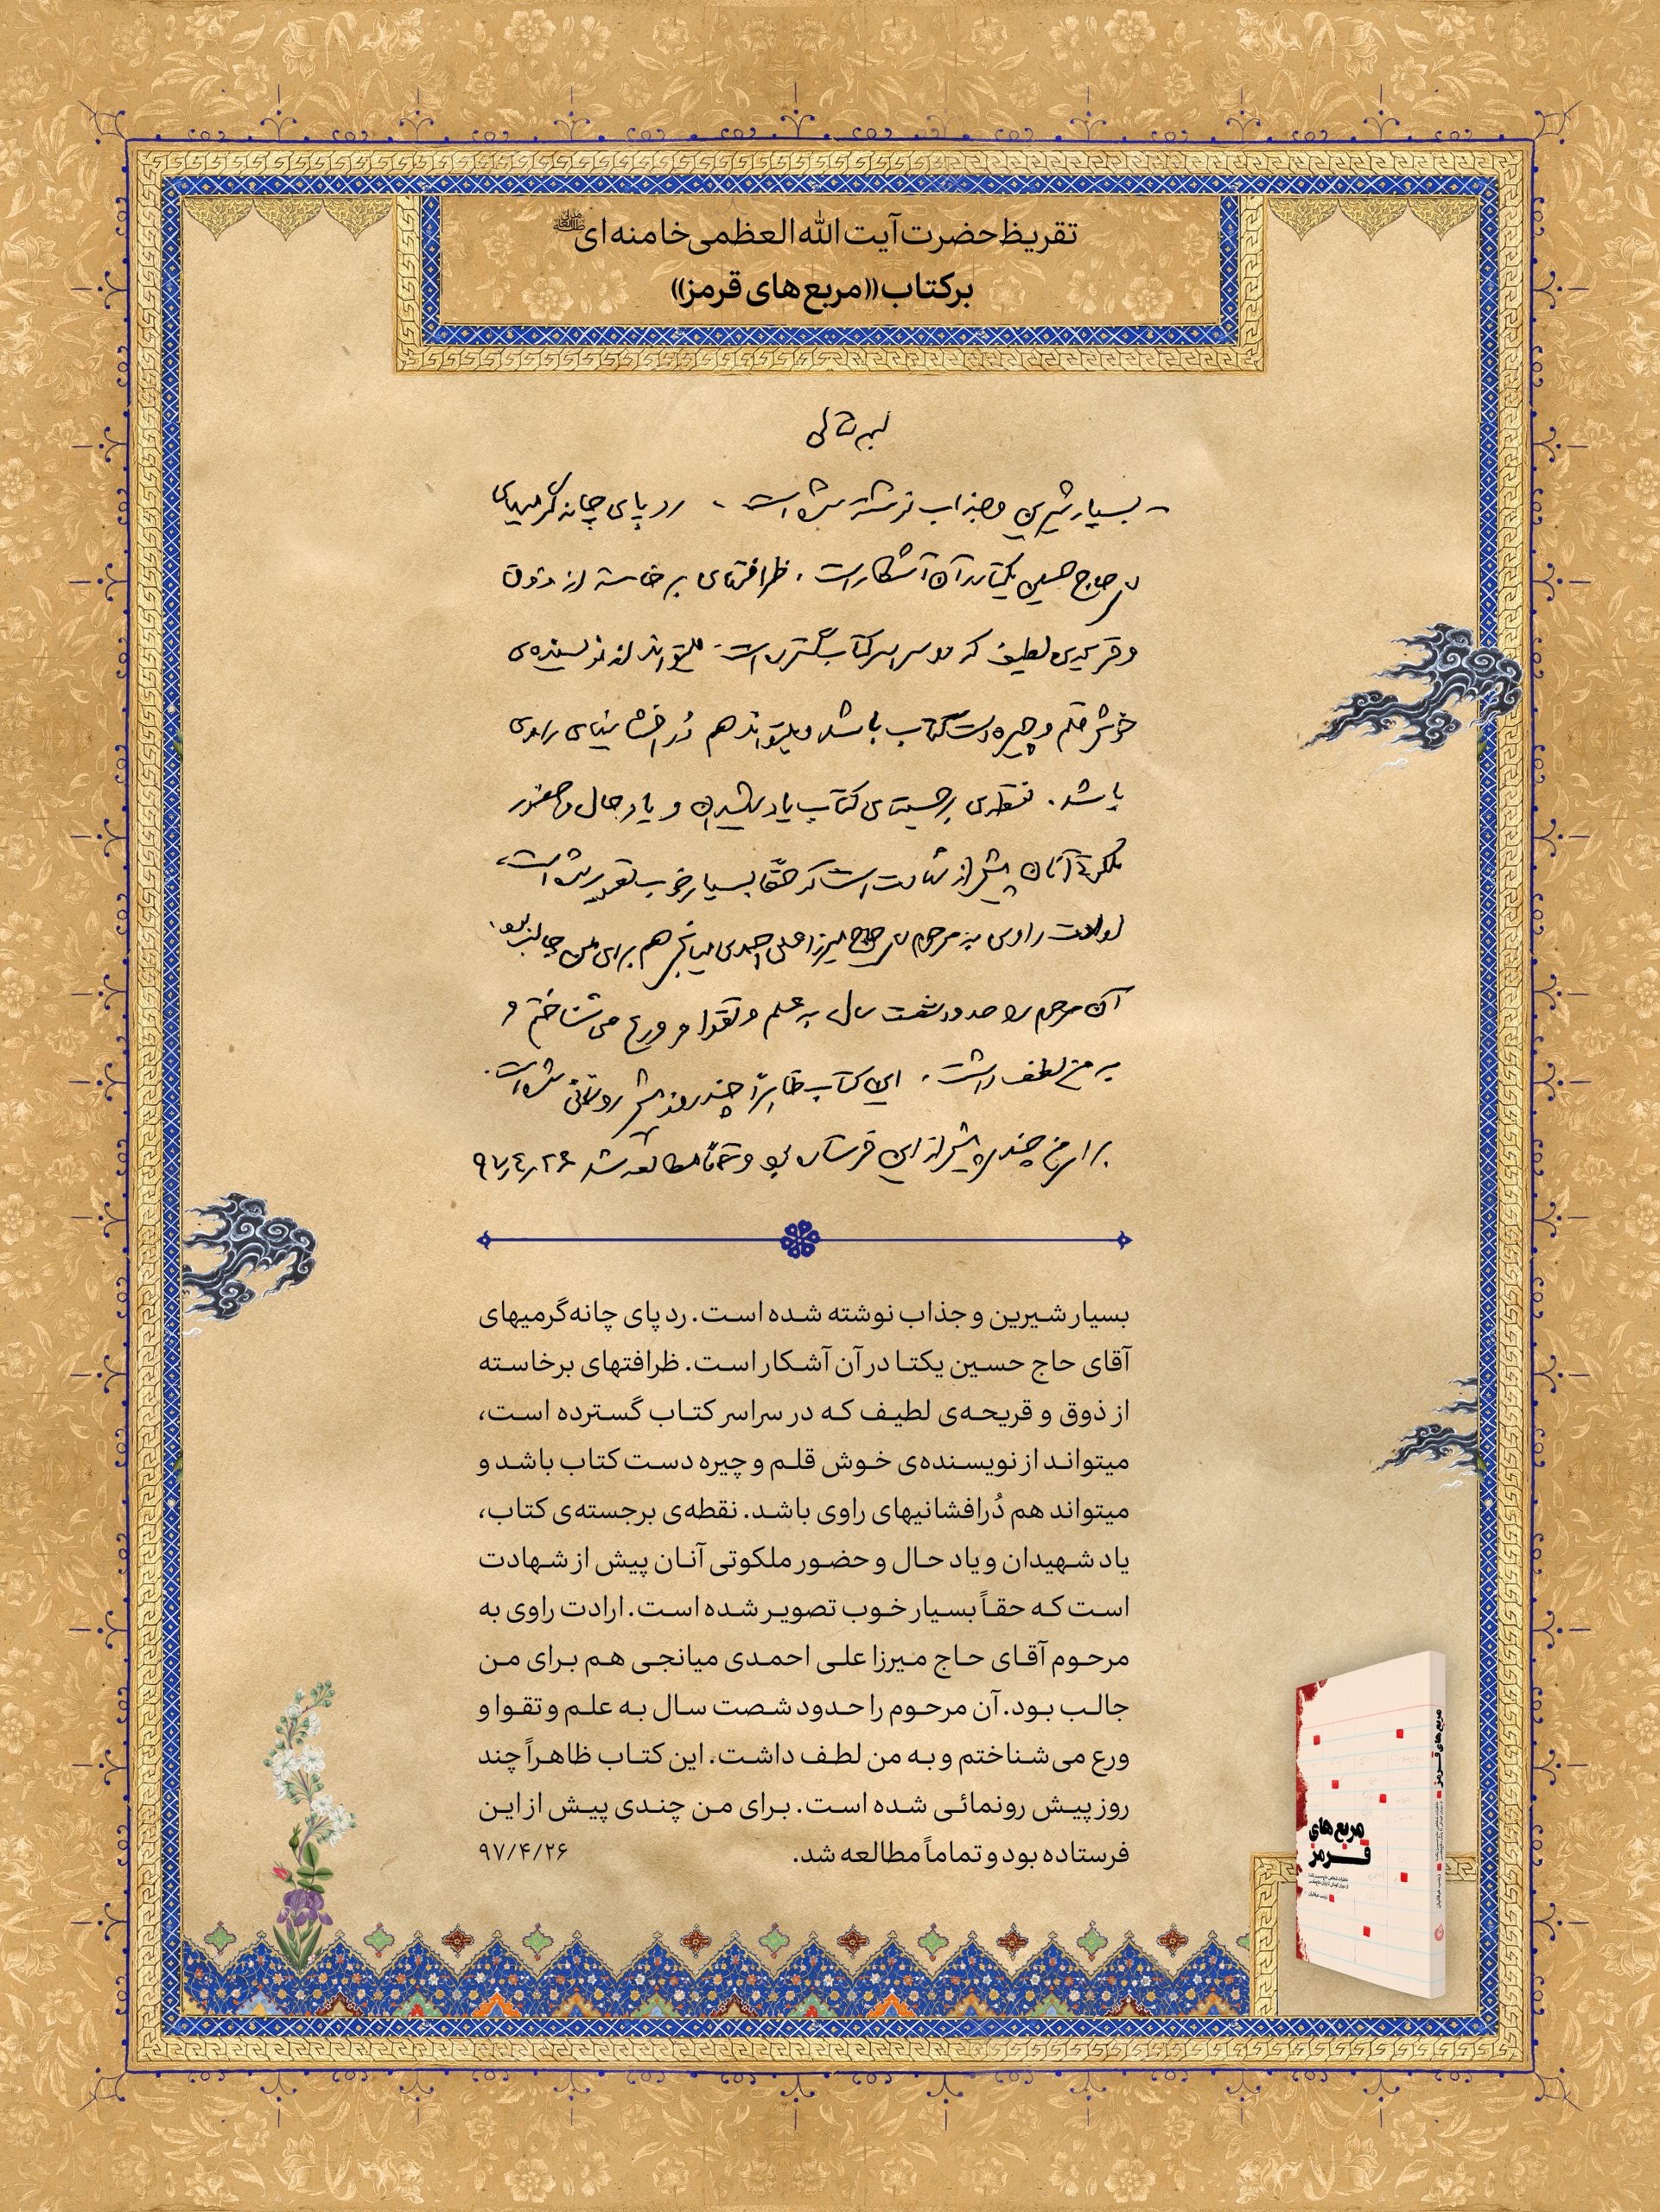 تقریظ حضرت آیت الله العظمی خامنه ای
بر کتاب «مربع های قرمز»
بسمه تعالی
- بسیار شیرین و جذاب نوشته شده است. رد پای چانه گرمیهای
آقای حاج حسین یکتا در آن آشکار است. ظرافتهای برخاسته از ذوق
و قریحه‌ی لطیف که در سراسر کتاب گسترده است، میتواند از نویسنده‌ی
خوش قلم و چیره دست کتاب باشد و میتواند هم دُرافشانیهای راوی
باشد. نقطه‌ی برجسته‌ی کتاب یاد شهیدان و یاد حال و حضور
ملکوتی آنان پیش از شهادت است که حقّاً بسیار خوب تصویر شده است،
ارادت راوی به مرحوم آقای حاج میرزا علی احمدی میانجی هم برای من جالب بود.
آن مرحوم را حدود شصت سال به علم و تقوا و ورع می‌شناختم و
به من لطف داشت. این کتاب ظاهراً چند روز پیش رونمائی شده است.
برای من چندی پیش از این فرستاده بود و تماماً مطالعه شد ۹۷/۴/۲۶
بسیار شیرین و جذاب نوشته شده است. رد پای چانه‌گرمیهای
آقای حاج حسین یکتا در آن آشکار است. ظرافتهای برخاسته
از ذوق و قریحه‌ی لطیف که در سراسر کتاب گسترده است،
میتواند از نویسنده‌ی خوش قلم و چیره دست کتاب باشد و
میتواند هم دُرافشانیهای راوی باشد. نقطه‌ی برجسته‌ی کتاب،
یاد شهیدان و یاد حال و حضور ملکوتی آنان پیش از شهادت
است که حقاً بسیار خوب تصویر شده است. ارادت راوی به
مرحوم آقای حاج میرزا علی احمدی میانجی هم برای من
جالب بود. آن مرحوم را حدود شصت سال به علم و تقوا و
ورع می‌شناختم و به من لطف داشت. این کتاب ظاهراً چند
روز پیش رونمائی شده است. برای من چندی پیش از این
فرستاده بود و تماماً مطالعه شد. ۹۷/۴/۲۶
مربع‌های
قرمز
مربع‌های قرمز